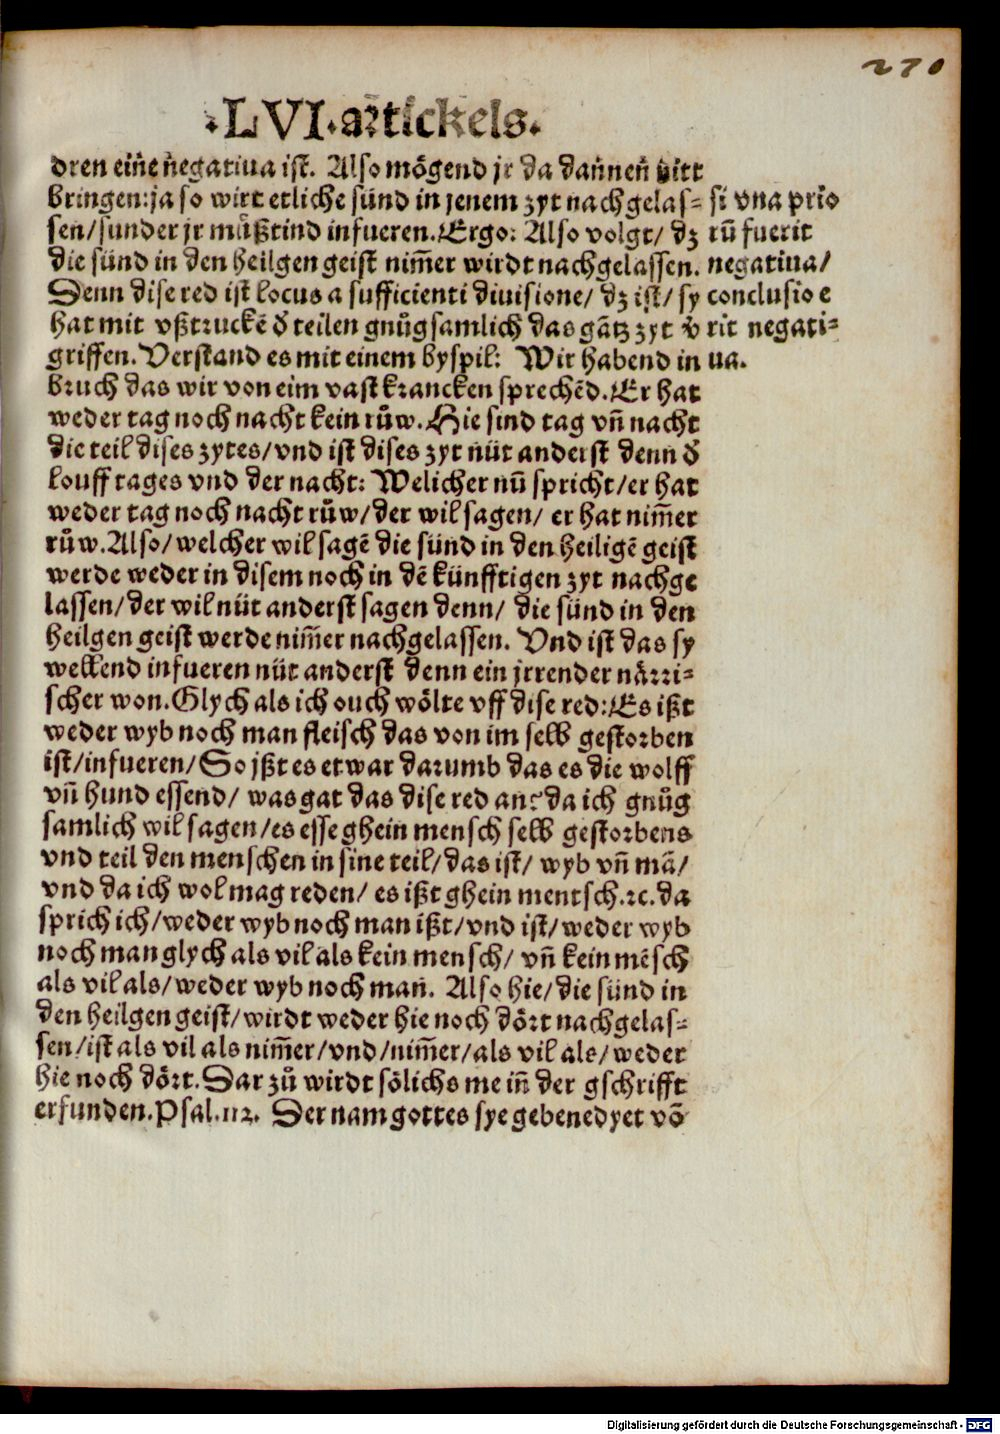 270
.LVI.artickels.
dren eiñe ñegatiua ist. Also mögend jr da dañneñ nitt
bringen: ja so wirt etliche sünd in jenem zyt nachgelas-
sen/ sunder jr müßtind infueren. Ergo: Also volgt/ dz
die sünd in den heilgen geist nim̃er wirdt nachgelassen.
Denn dise red ist locus a sufficienti diuisione/ dz ist/ sy
hat mit vßtruckẽ d̕ teilen gnůgsamlich das gãtz zyt v̕
griffen. Verstand es mit einem byspil: Wir habend in
bruch das wir von eim vast krancken sprechẽd. Er hat
weder tag noch nacht kein růw. Hie sind tag vñ nacht
die teil dises zytes/ vnd ist dises zyt nüt anderst denn d̕
louff tages vnd der nacht: Welicher nũ spricht/ er hat
weder tag noch nacht růw/ der wil sagen/ er hat nim̃er
růw. Also/ welcher wil sagẽ die sünd in den heiligẽ geist
werde weder in disem noch in dẽ künfftigen zyt nachge
lassen/ der wil nüt anderst sagen denn/ die sünd in den
heilgen geist werde nim̃er nachgelassen. Vnd ist das sy
wellend infueren nüt anderst denn ein jrrender närri-
scher won. Glych als ich ouch wölte vff dise red: Es ißt
weder wyb noch man fleisch das von im selb gestorben
ist/ infueren/ So jßt es etwar darumb das es die wolff
vñ hund essend/ was gat das dise red an? da ich gnůg
samlich wil sagen/ es esse ghein mensch selb gestorbens
vnd teil den menschen in sine teil/ das ist/ wyb vñ mã/
vnd da ich wol mag reden/ es ißt ghein mentsch.ꝛc. da
sprich ich/ weder wyb noch man ißt/ vnd ist/ weder wyb
noch man glych als vil als kein mensch/ vñ kein mẽsch
als vil als/ weder wyb noch mañ. Also hie/ die sünd in
den heilgen geist/ wirdt weder hie noch dört nachgelas-
sen/ ist als vil als nim̃er/ vnd/ nim̃er/ als vil als/ weder
hie noch dört. Dar zů wirdt sölichs me iñ der gschrifft
erfunden. Psal.112. Der nam gottes sye gebenedyet võ
si vna prio
rũ fuerit
negatiua/
conclusio e
rit negati-
ua.
Digitalisierung gefördert durch die Deutsche Forschungsgemeinschaft - DFG